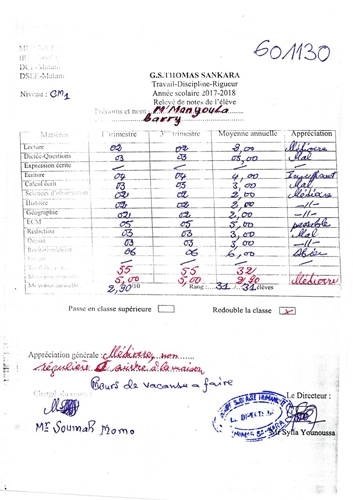 601130
DSEE-Matam
G.S.THOMAS SANKARA
Travail-Discipline-Rigueur
Niveau : CM1
Année scolaire 2017-2018
Relevé de notes de l'élève
Prénoms et nom : M'Mangouba
Barry
Matières 1er trimestre 3ème trimestre Moyenne annuelle Appréciation
Lecture 02 02 2,00 Médiocre
Dictée-Questions 03 03 03,00 Mal
Expression écrite
Ecriture 04 04 4,00 Insuffisant
Calcul écrit 03 03 3,00 Mal
Sciences d'observation 02 02 2,00 Médiocre
Histoire 02 02 2,00 -//-
Géographie 02 02 2,00 -//-
ECM 05 05 5,00 passable
Rédaction 03 03 3,00 Mal
Dessin 03 03 3,00 -//-
06 06 6,00
55 55 32
5,00 5,00 2,90 Médiocre
Moyenne annuelle 2,90/10 Rang : 31 / 31 élèves
Passe en classe supérieure Redouble la classe x
Appréciation générale : Médiocre, non
régulière à suivre à la maison
Cours de vacance à faire
Chargé du cours Le Directeur :
Mr Soumah Momo
Mr Sylla Younoussa